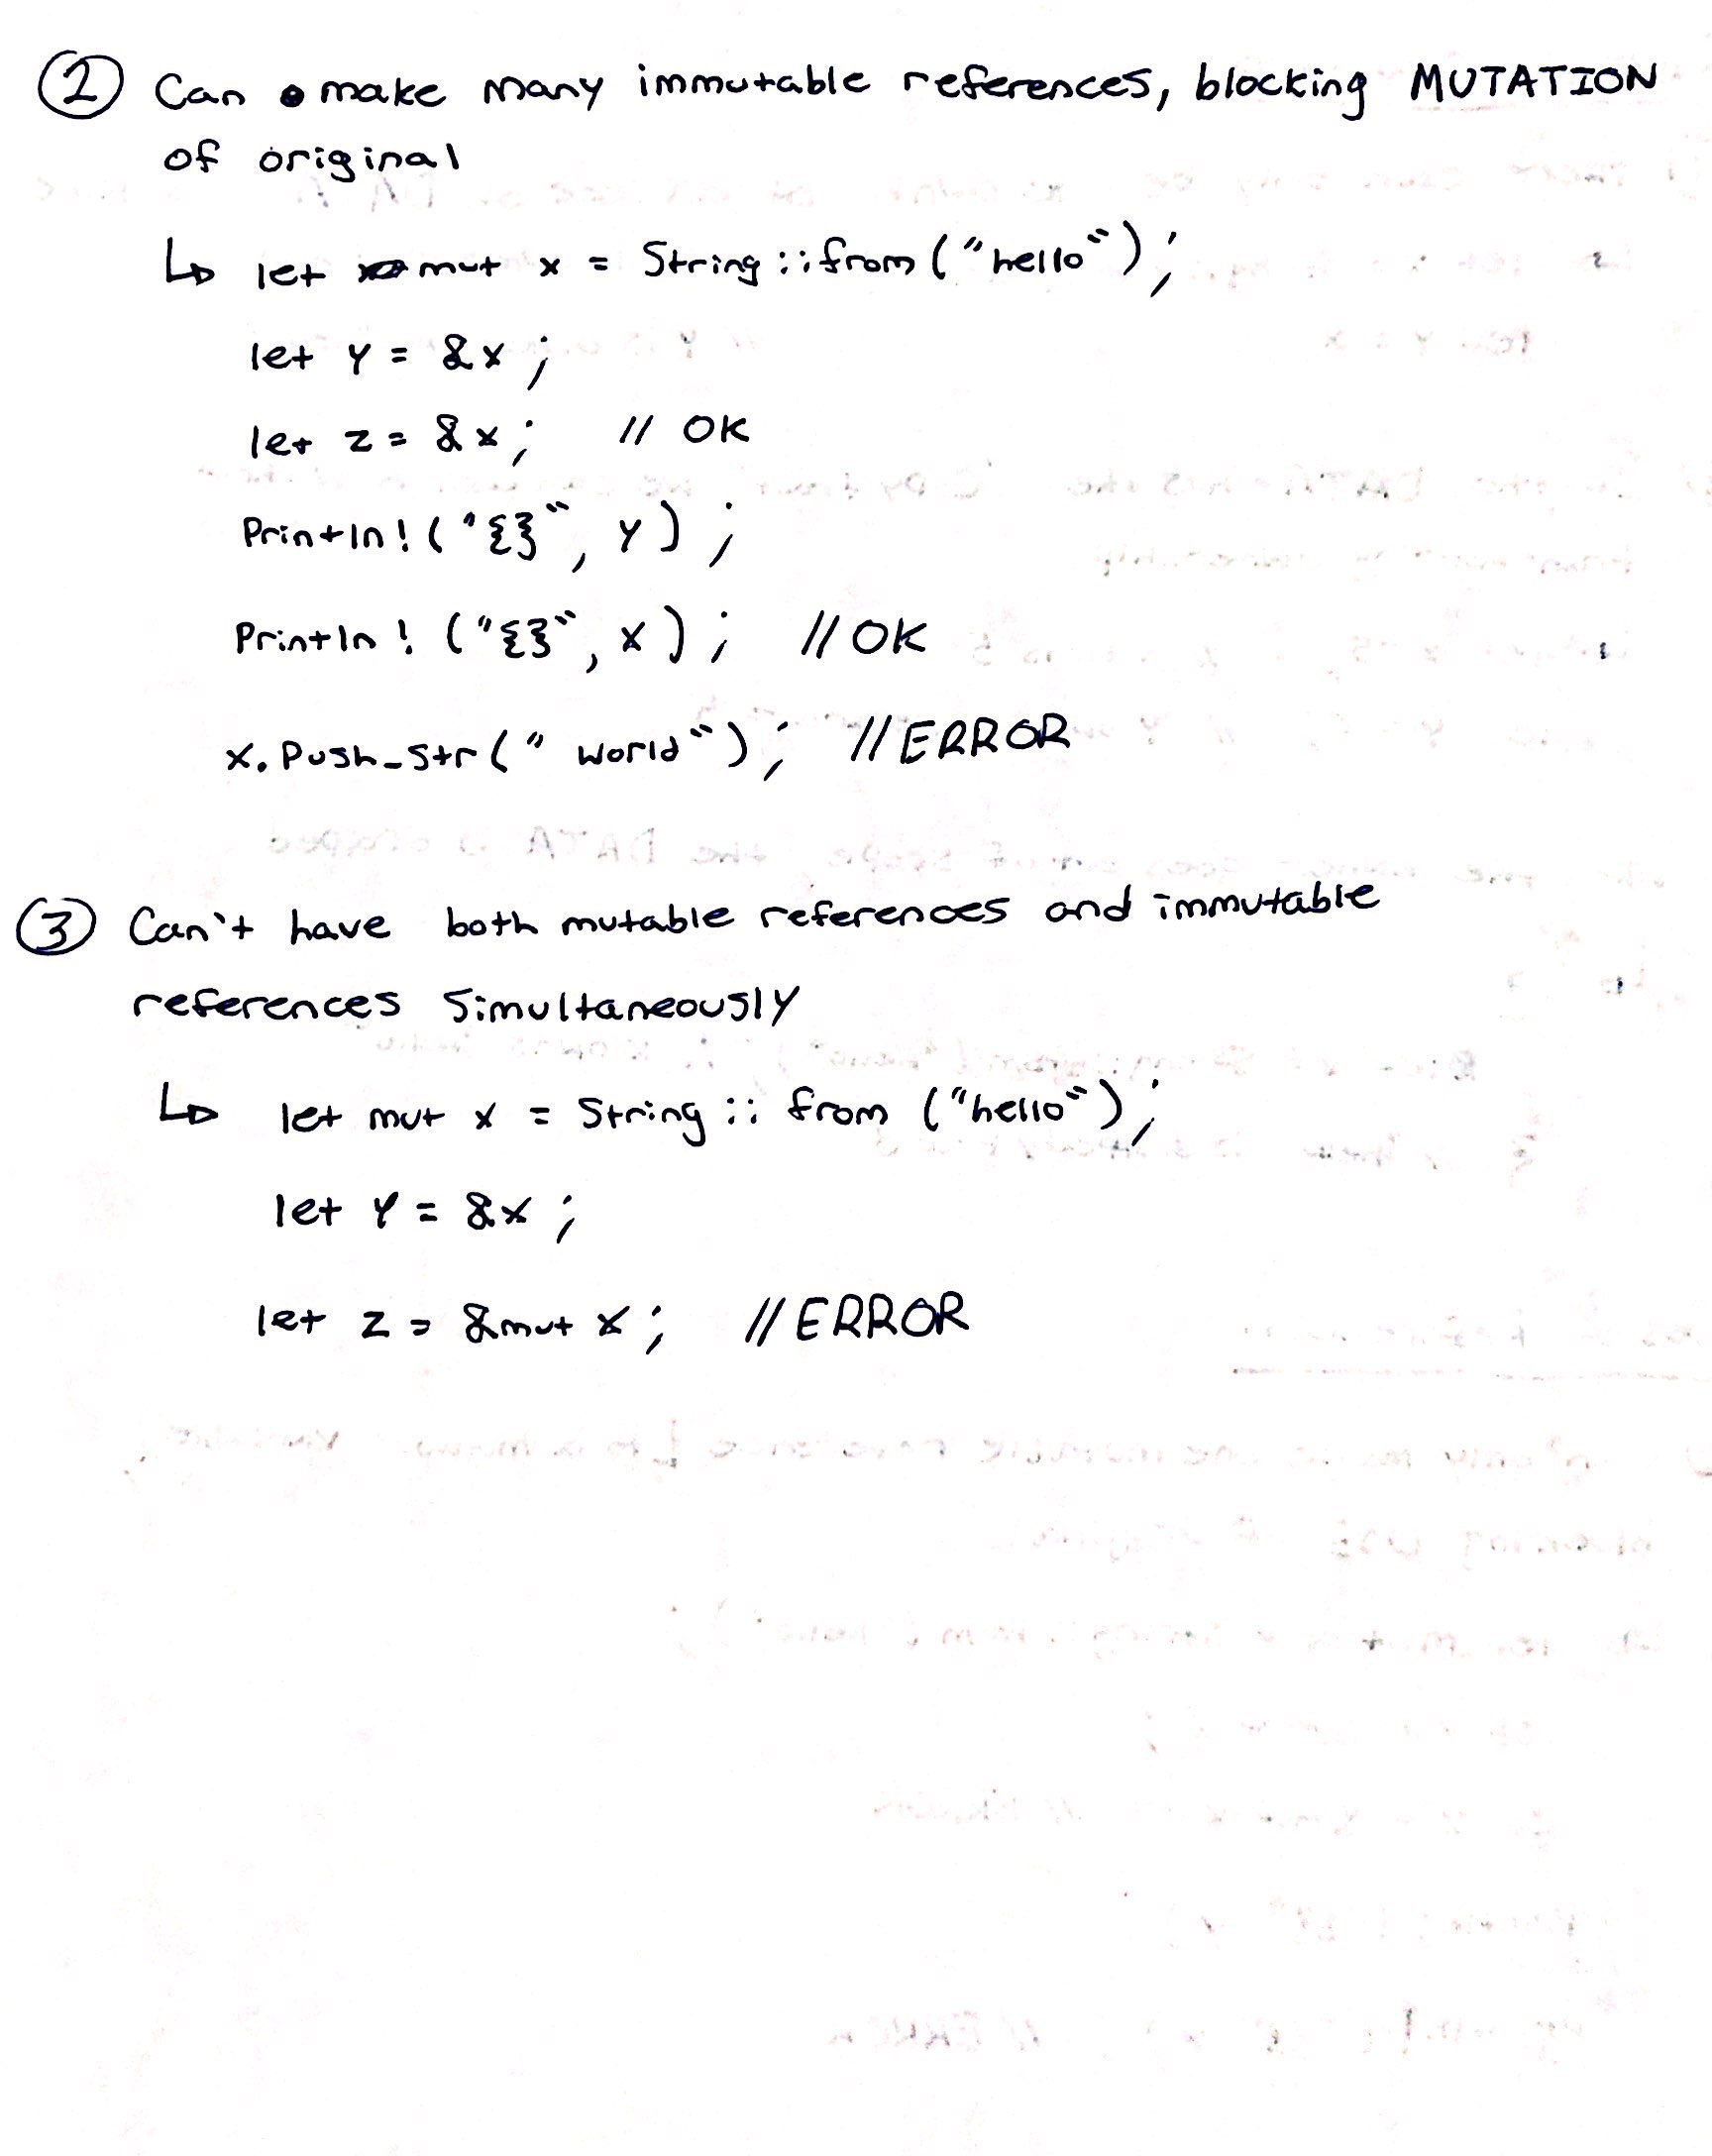 ② Can make many immutable references, blocking MUTATION
of original
↳ let mut x = String::from("hello");
let y = &x;
let z = &x; // OK
Println!("{}", y);
Println!("{}", x); // OK
x.Push_str(" world"); // ERROR
③ Can't have both mutable references and immutable
references simultaneously
↳ let mut x = String::from("hello");
let y = &x;
let z = &mut x; // ERROR